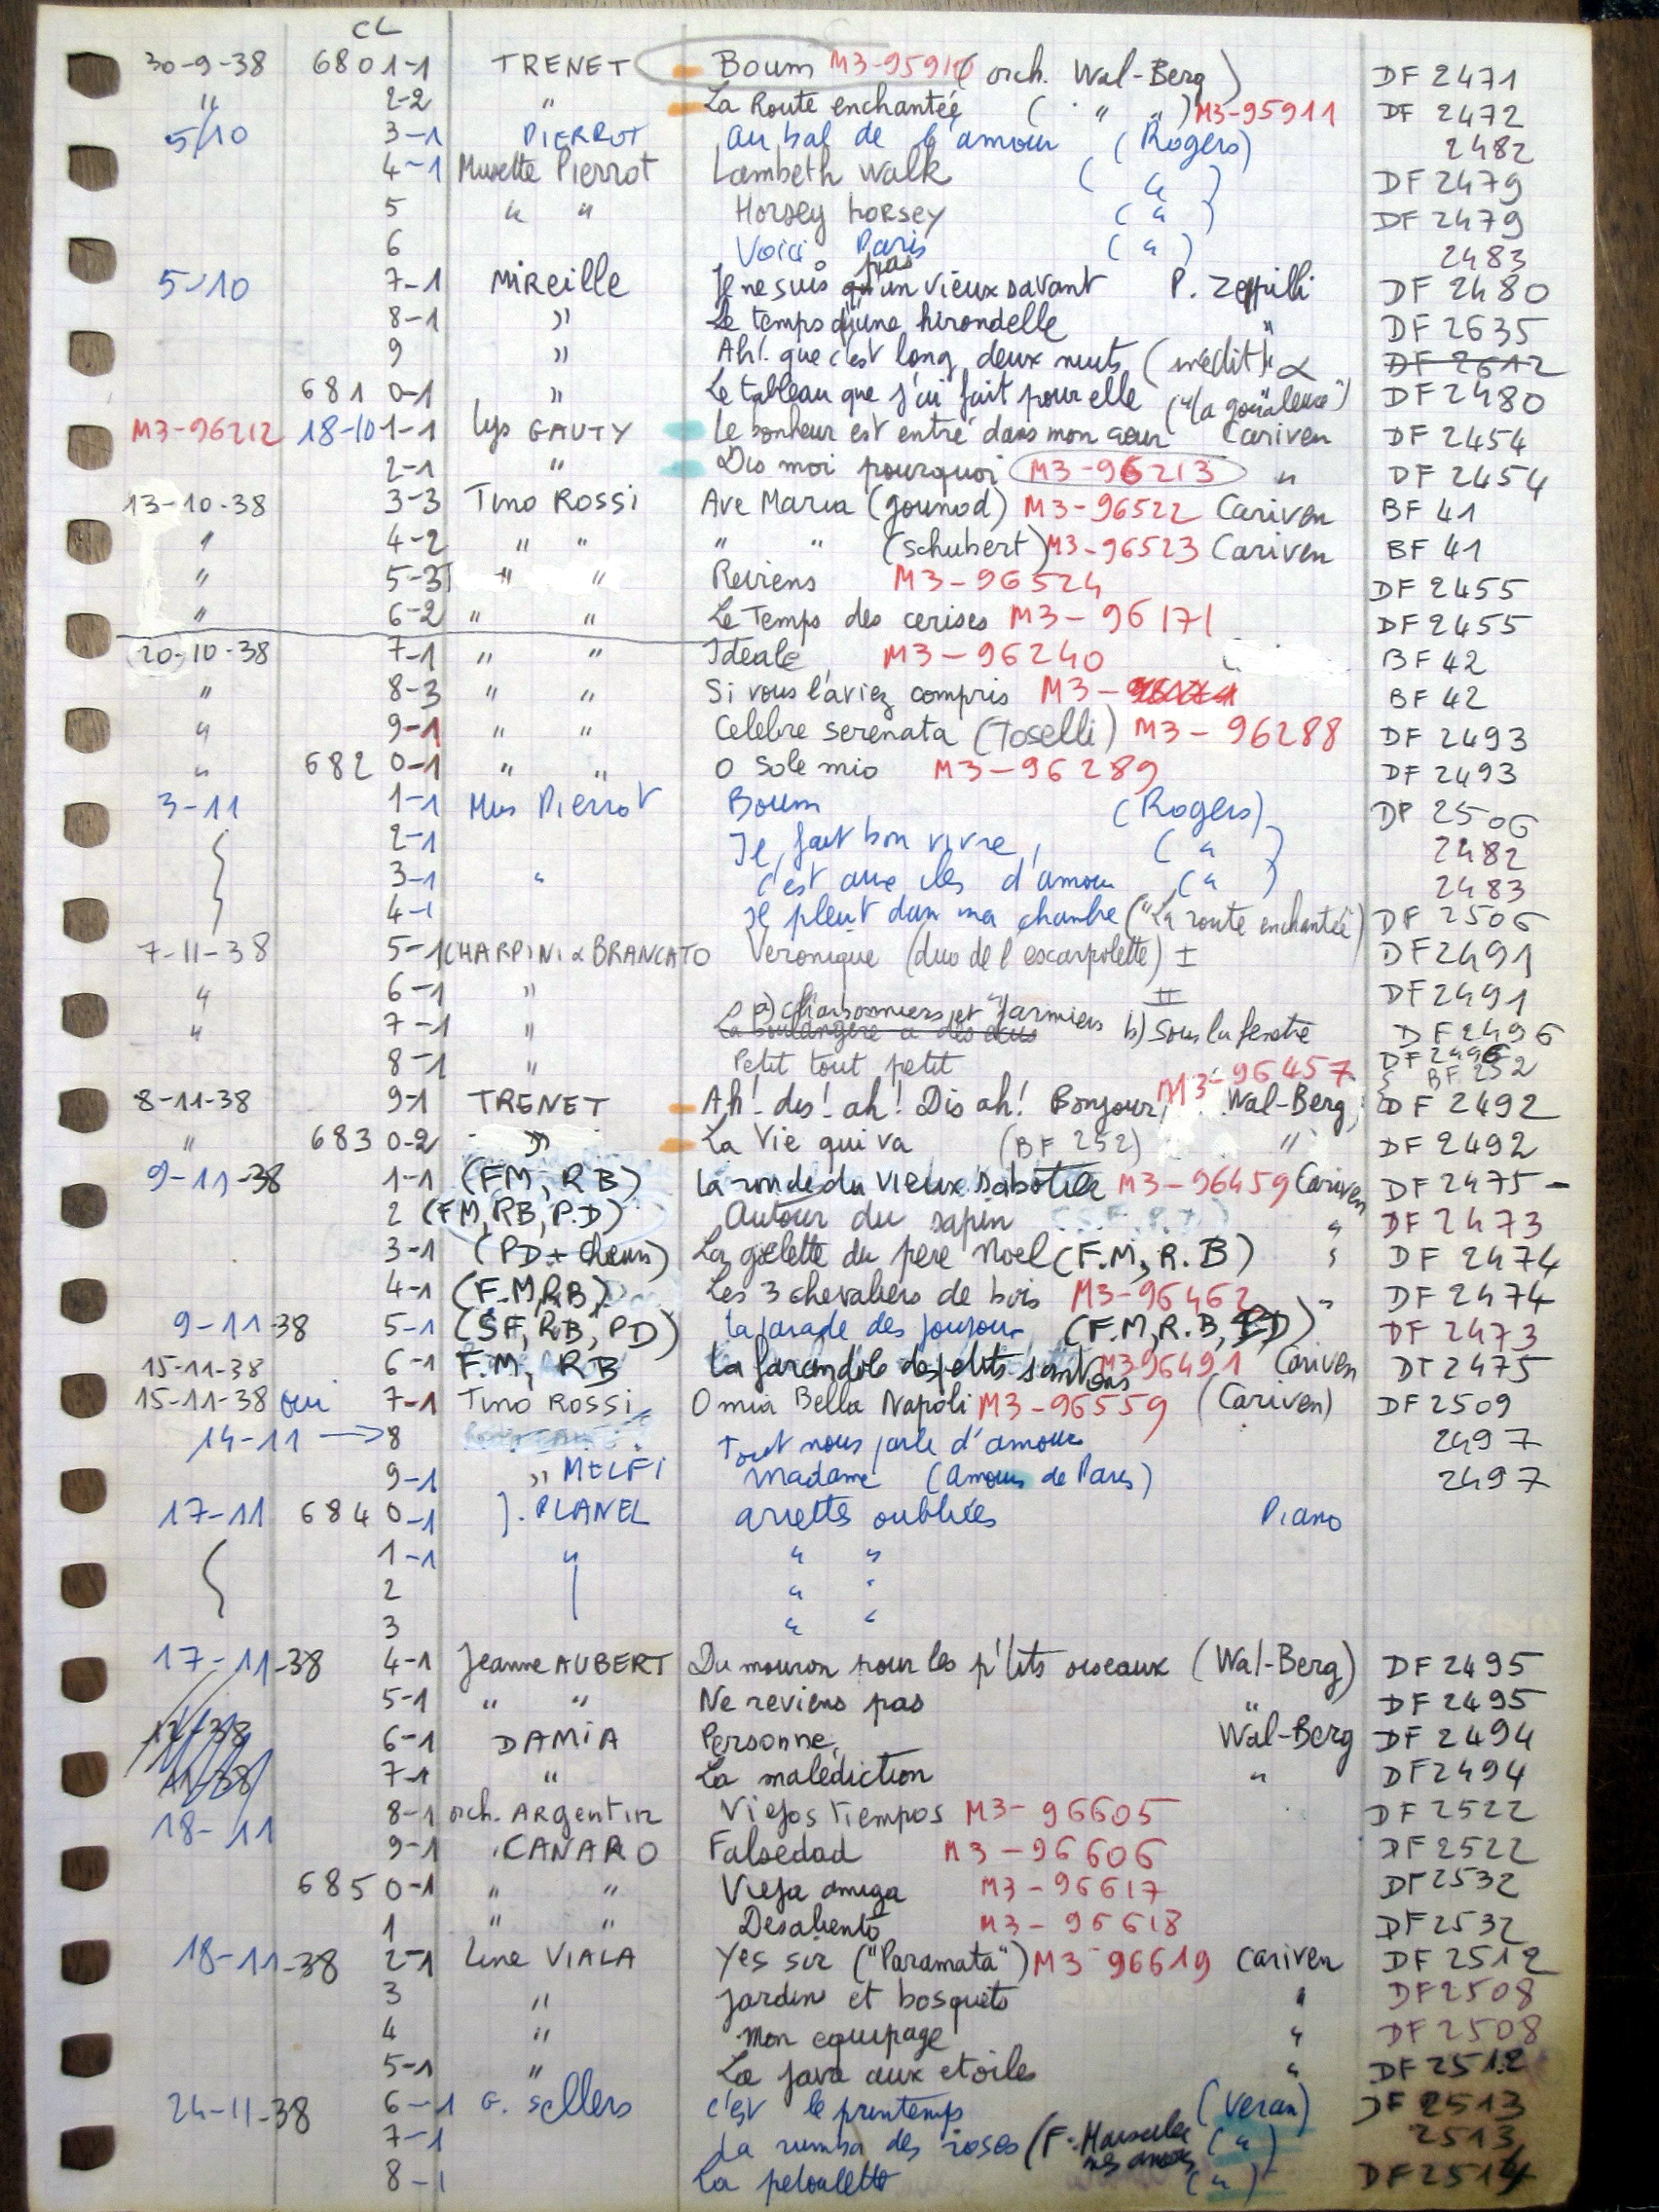 CL
30-9-38 6801-1 TRENET Boum M3-95910 (orch. Wal-Berg) DF 2471
" 2-2 " La Route enchantée ( " " ) M3-95911 DF 2472
5/10 3-1 PIERROT au bal de l'amour (Rogers) 2482
4-1 Musette Pierrot Lambeth Walk ( " ) DF 2479
5 " " Horsey horsey ( " ) DF 2479
6 Voici Paris ( " ) 2483
5-10 7-1 Mireille Je ne suis pas un vieux savant P. Zeppilli DF 2480
8-1 " Le temps d'une hirondelle " DF 2635
9 " Ah! que c'est long deux nuits (inédit) DF 2612
681 0-1 " Le tableau que j'ai fait pour elle DF 2480
M3-96212 18-10 1-1 Lys GAUTY Le bonheur est entré dans mon coeur Cariven DF 2454
2-1 " Dis moi pourquoi M3-96213 " DF 2454
13-10-38 3-3 Tino Rossi Ave Maria (gounod) M3-96522 Cariven BF 41
" 4-2 " " " " (schubert) M3-96523 Cariven BF 41
" 5-3 " " Reviens M3-96524 DF 2455
" 6-2 " " Le Temps des cerises M3-96171 DF 2455
(20)-10-38 7-1 " " Ideale M3-96240 BF 42
" 8-3 " " Si vous l'aviez compris M3- BF 42
" 9-1 " " Celebre serenata (Toselli) M3-96288 DF 2493
" 682 0-1 " " O sole mio M3-96289 DF 2493
3-11 1-1 Mus Pierrot Boum (Rogers) DF 2506
2-1 Il fait bon vivre ( " ) 2482
3-1 " c'est aux iles d'amour ( " ) 2483
4-1 Il pleut dans ma chambre ("La route enchantée) DF 2506
7-11-38 5-1 CHARPINI & BRANCATO Veronique (duo de l'escarpolette) I DF 2491
" 6-1 " " II DF 2491
" 7-1 " La boulangère a des écus a) Charbonniers et farmiers b) Sous la fenetre DF 2496
8-1 " Petit tout petit DF 2496 BF 252
8-11-38 9-1 TRENET Ah! dis! ah! Dis ah! Bonjour M3-96457 Wal-Berg DF 2492
" 683 0-2 " La Vie qui va (BF 252) " DF 2492
9-11-38 1-1 (FM, RB) La ronde du vieux sabotier M3-96459 Cariven DF 2475 -
2 (FM, RB, P.D) Autour du sapin " DF 2473
3-1 (PD + Choeurs) La goelette du pere Noel (F.M, R.B) " DF 2474
4-1 (F.M, RB) Les 3 chevaliers de bois M3-96462 " DF 2474
9-11-38 5-1 (SF, RB, PD) La parade des joujoux (F.M, R.B, PD) DF 2473
15-11-38 6-1 F.M, RB La farandole des petits santons M3 96491 Cariven DF 2475
15-11-38 oui 7-1 Tino Rossi O mia Bella Napoli M3-96559 (Cariven) DF 2509
14-11 → 8 Tout nous parle d'amour 2497
9-1 " MELFI Madame (Amours de Paris) 2497
17-11 684 0-1 J. PLANEL ariettes oubliées Piano
1-1 " " "
2 " "
3 " "
17-11-38 4-1 Jeanne AUBERT Du mouron pour les p'tits oiseaux (Wal-Berg) DF 2495
5-1 " " Ne reviens pas " DF 2495
6-1 DAMIA Personne Wal-Berg DF 2494
7-1 " La malédiction " DF 2494
18-11 8-1 orch. ARgentin Viejos tiempos M3-96605 DF 2522
9-1 CANARO Falsedad M3-96606 DF 2522
685 0-1 " " Vieja amiga M3-96617 DF 2532
1 " " Desaliento M3-96618 DF 2532
18-11-38 2-1 Line VIALA Yes sir ("Paramata") M3-96619 Cariven DF 2512
3 " Jardins et bosquets " DF 2508
4 " Mon equipage " DF 2508
5-1 " La java aux etoiles " DF 2512
24-11-38 6-1 G. Sellers c'est le printemps (Veran) DF 2513
7-1 La rumba des roses (F. Marseille mes amours ( " ) 2513
8-1 La petoulette ( " ) DF 2514